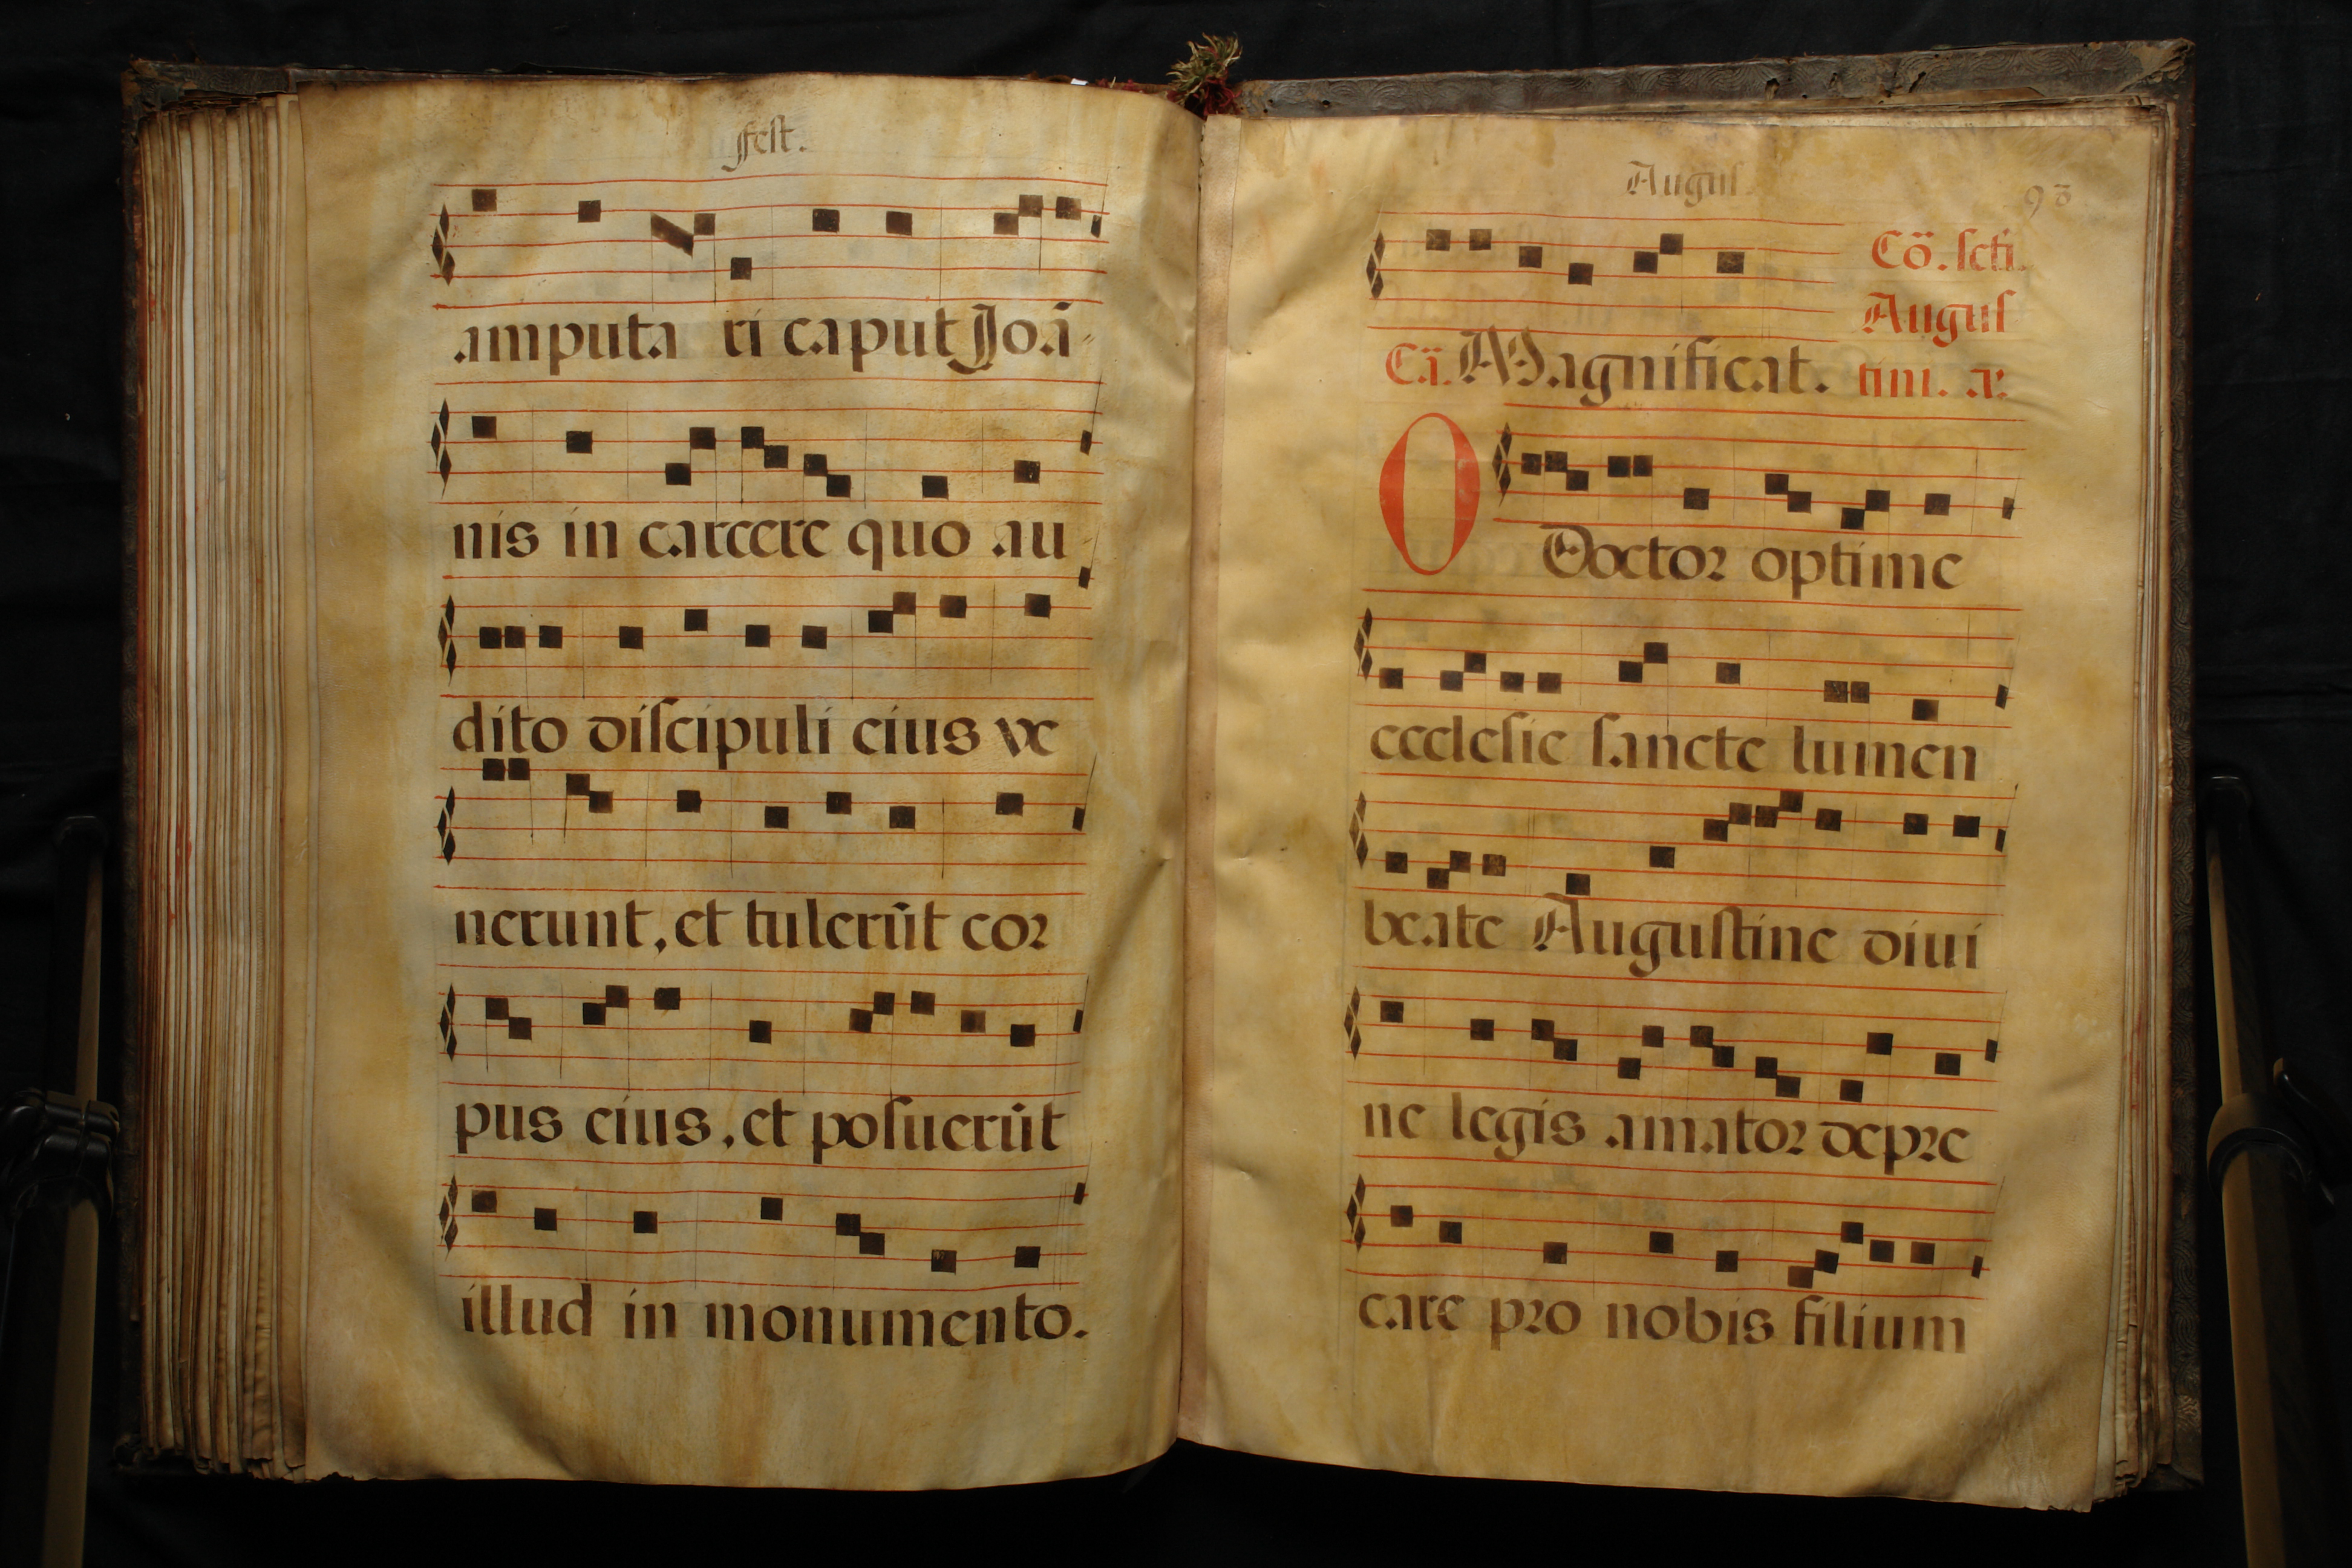 fest.
amputa ri caput Joā-
nis in carcere quo au
dito discipuli eius ve
nerunt, et tulerūt cor
pus eius, et posuerūt
illud in monumento.
Augus.
93
Cō. scti.
Augus
tini. a.
Cā. Magnificat.
O Doctor optime
ecclesie sancte lumen
beate Augustine divi
ne legis amator depre
care pro nobis filium